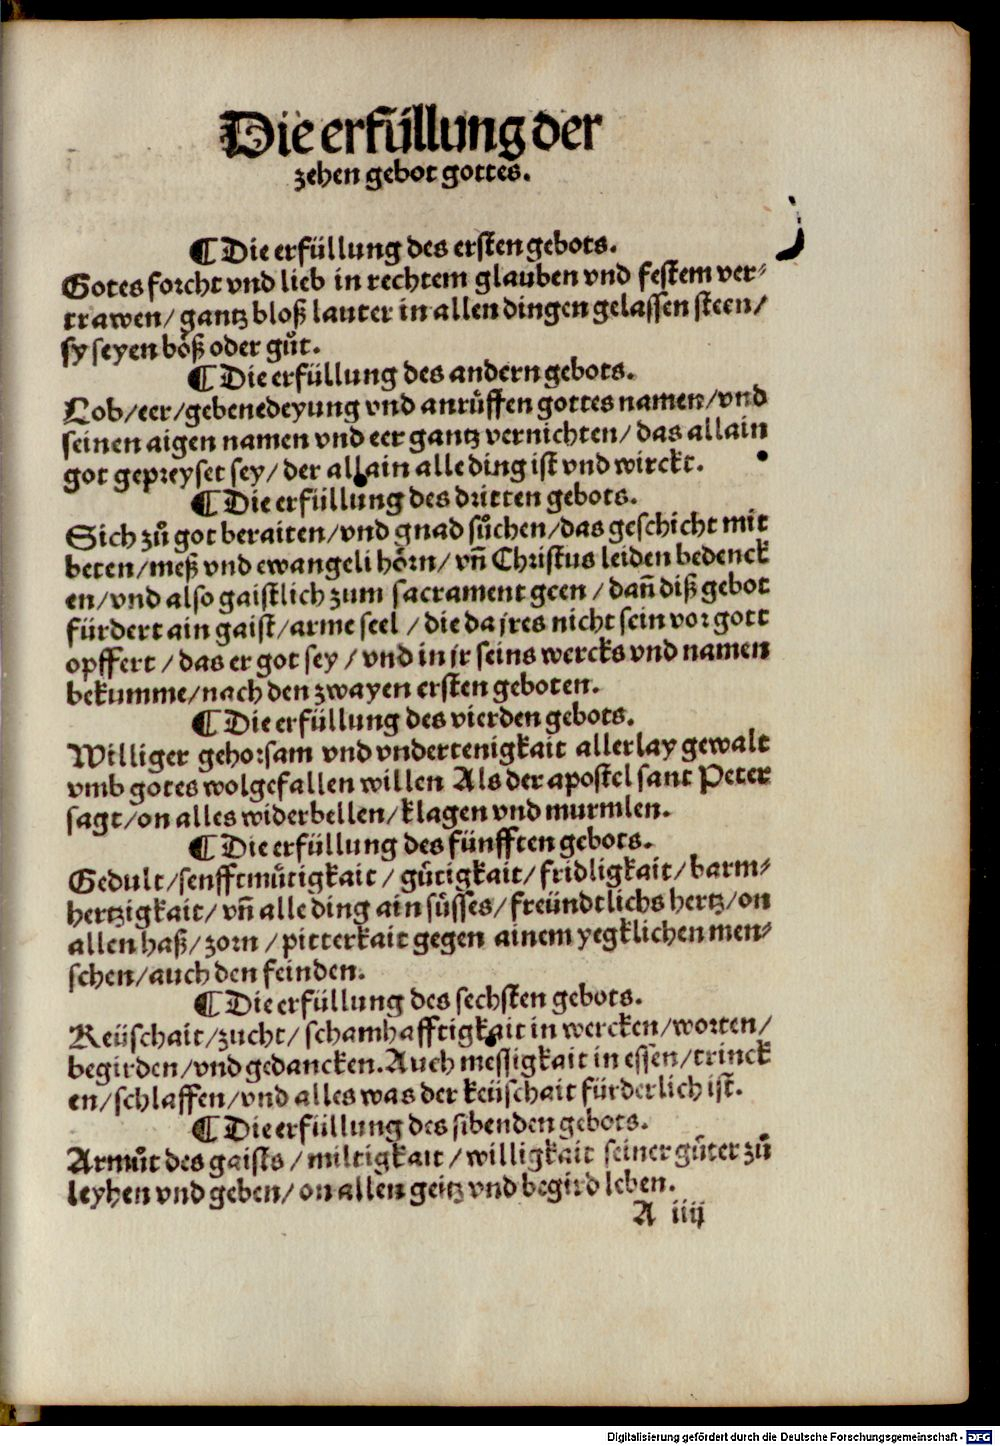 Die erfüllung der
zehen gebot gottes.
¶ Die erfüllung des ersten gebots.
Gotes forcht vnd lieb in rechtem glauben vnd festem ver⸗
trawen/ gantz bloß lauter in allen dingen gelassen steen/
sy seyen böß oder gůt.
¶ Die erfüllung des andern gebots.
Lob/eer/gebenedeyung vnd anrůffen gottes namen/vnd
seinen aigen namen vnd eer gantz vernichten/ das allain
got gepreyset sey/ der allain alle ding ist vnd wirckt.
¶ Die erfüllung des dritten gebots.
Sich zů got beraiten/vnd gnad sůchen/das geschicht mit
beten/meß vnd ewangeli hörn/ vñ Christus leiden bedenck
en/vnd also gaistlich zum sacrament geen / dañ diß gebot
fürdert ain gaist/arme seel / die da jres nicht sein vor gott
opffert / das er got sey / vnd in jr seins wercks vnd namen
bekumme/nach den zwayen ersten geboten.
¶ Die erfüllung des vierden gebots.
Williger gehorsam vnd vndertenigkait allerlay gewalt
vmb gotes wolgefallen willen Als der apostel sant Peter
sagt/on alles widerbellen/klagen vnd murmlen.
¶ Die erfüllung des fünfften gebots.
Gedult/senfftmůtigkait / gůtigkait/ fridligkait/ barm⸗
hertzigkait/ vñ alle ding ain sůsses/ freündtlichs hertz/on
allen haß/ zorn / pitterkait gegen ainem yegklichen men⸗
schen/auch den feinden.
¶ Die erfüllung des sechsten gebots.
Keüschait/zucht/ schamhafftigkait in wercken/worten/
begirden/vnd gedancken. Auch messigkait in essen/trinck
en/schlaffen/vnd alles was der keüschait fürderlich ist.
¶ Die erfüllung des sibenden gebots.
Armůt des gaists / miltigkait / willigkait seiner gůter zů
leyhen vnd geben/ on allen geitz vnd begird leben.
A iiij
Digitalisierung gefördert durch die Deutsche Forschungsgemeinschaft - DFG